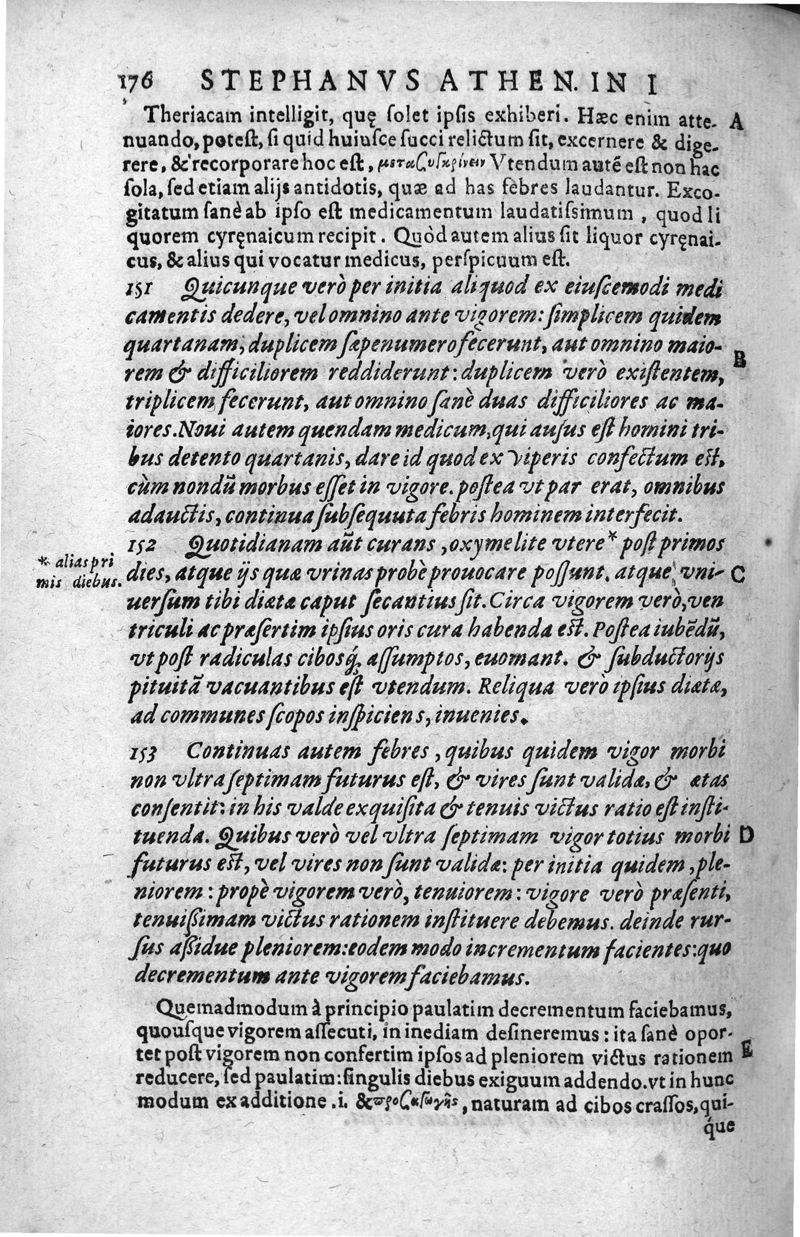 176 STEPHANVS ATHEN. IN I
Theriacam intelligit, quę solet ipsis exhiberi. Hæc enim atte- A
nuando, potest, si quid huiusce succi relictum sit, excernere & dige-
rere, & recorporare hoc est, Vtendum autẽ est non hac
sola, sed etiam alijs antidotis, quæ ad has febres laudantur. Exco-
gitatum sanè ab ipso est medicamentum laudatissimum, quod li
quorem cyręnaicum recipit. Quòd autem alius sit liquor cyręnai-
cus, & alius qui vocatur medicus, perspicuum est.
151 Quicunque verò per initia aliquod ex eiuscemodi medi
camentis dedere, vel omnino ante vigorem: simplicem quidem
quartanam, duplicem sæpenumero fecerunt, aut omnino maio- B
rem & difficiliorem reddiderunt: duplicem verò existentem,
triplicem fecerunt, aut omnino sanè duas difficiliores ac ma-
iores. Noui autem quendam medicum, qui ausus est homini tri-
bus detento quartanis, dare id quod ex viperis confectum est,
cùm nondũ morbus esset in vigore. postea vt par erat, omnibus
adauctis, continua subsequuta febris hominem interfecit.
152 Quotidianam aũt curans, oxymelite vtere * post primos
* alias pri
mis diebus.
dies, atque ijs quæ vrinas probè prouocare possunt. atque vni- C
uersum tibi diætæ caput secantius sit. Circa vigorem verò, ven
triculi ac præsertim ipsius oris cura habenda est. Postea iubẽdũ,
vt post radiculas cibosq́; assumptos, euomant. & subductorijs
pituitã vacuantibus est vtendum. Reliqua verò ipsius diætæ,
ad communes scopos inspiciens, inuenies.
153 Continuas autem febres, quibus quidem vigor morbi
non vltra septimam futurus est, & vires sunt validæ, & ætas
consentit: in his valde exquisita & tenuis victus ratio est insti-
tuenda. Quibus verò vel vltra septimam vigor totius morbi D
futurus est, vel vires non sunt validæ: per initia quidem, ple-
niorem: propè vigorem verò, tenuiorem: vigore verò præsenti,
tenuissimam victus rationem instituere debemus. deinde rur-
sus assidue pleniorem: eodem modo incrementum facientes: quo
decrementum ante vigorem faciebamus.
Quemadmodum à principio paulatim decrementum faciebamus,
quousque vigorem assecuti, in inediam desineremus: ita sanè opor-
tet post vigorem non confertim ipsos ad pleniorem victus rationem E
reducere, sed paulatim: singulis diebus exiguum addendo. vt in hunc
modum ex additione .i. & , naturam ad cibos crassos, qui-
que